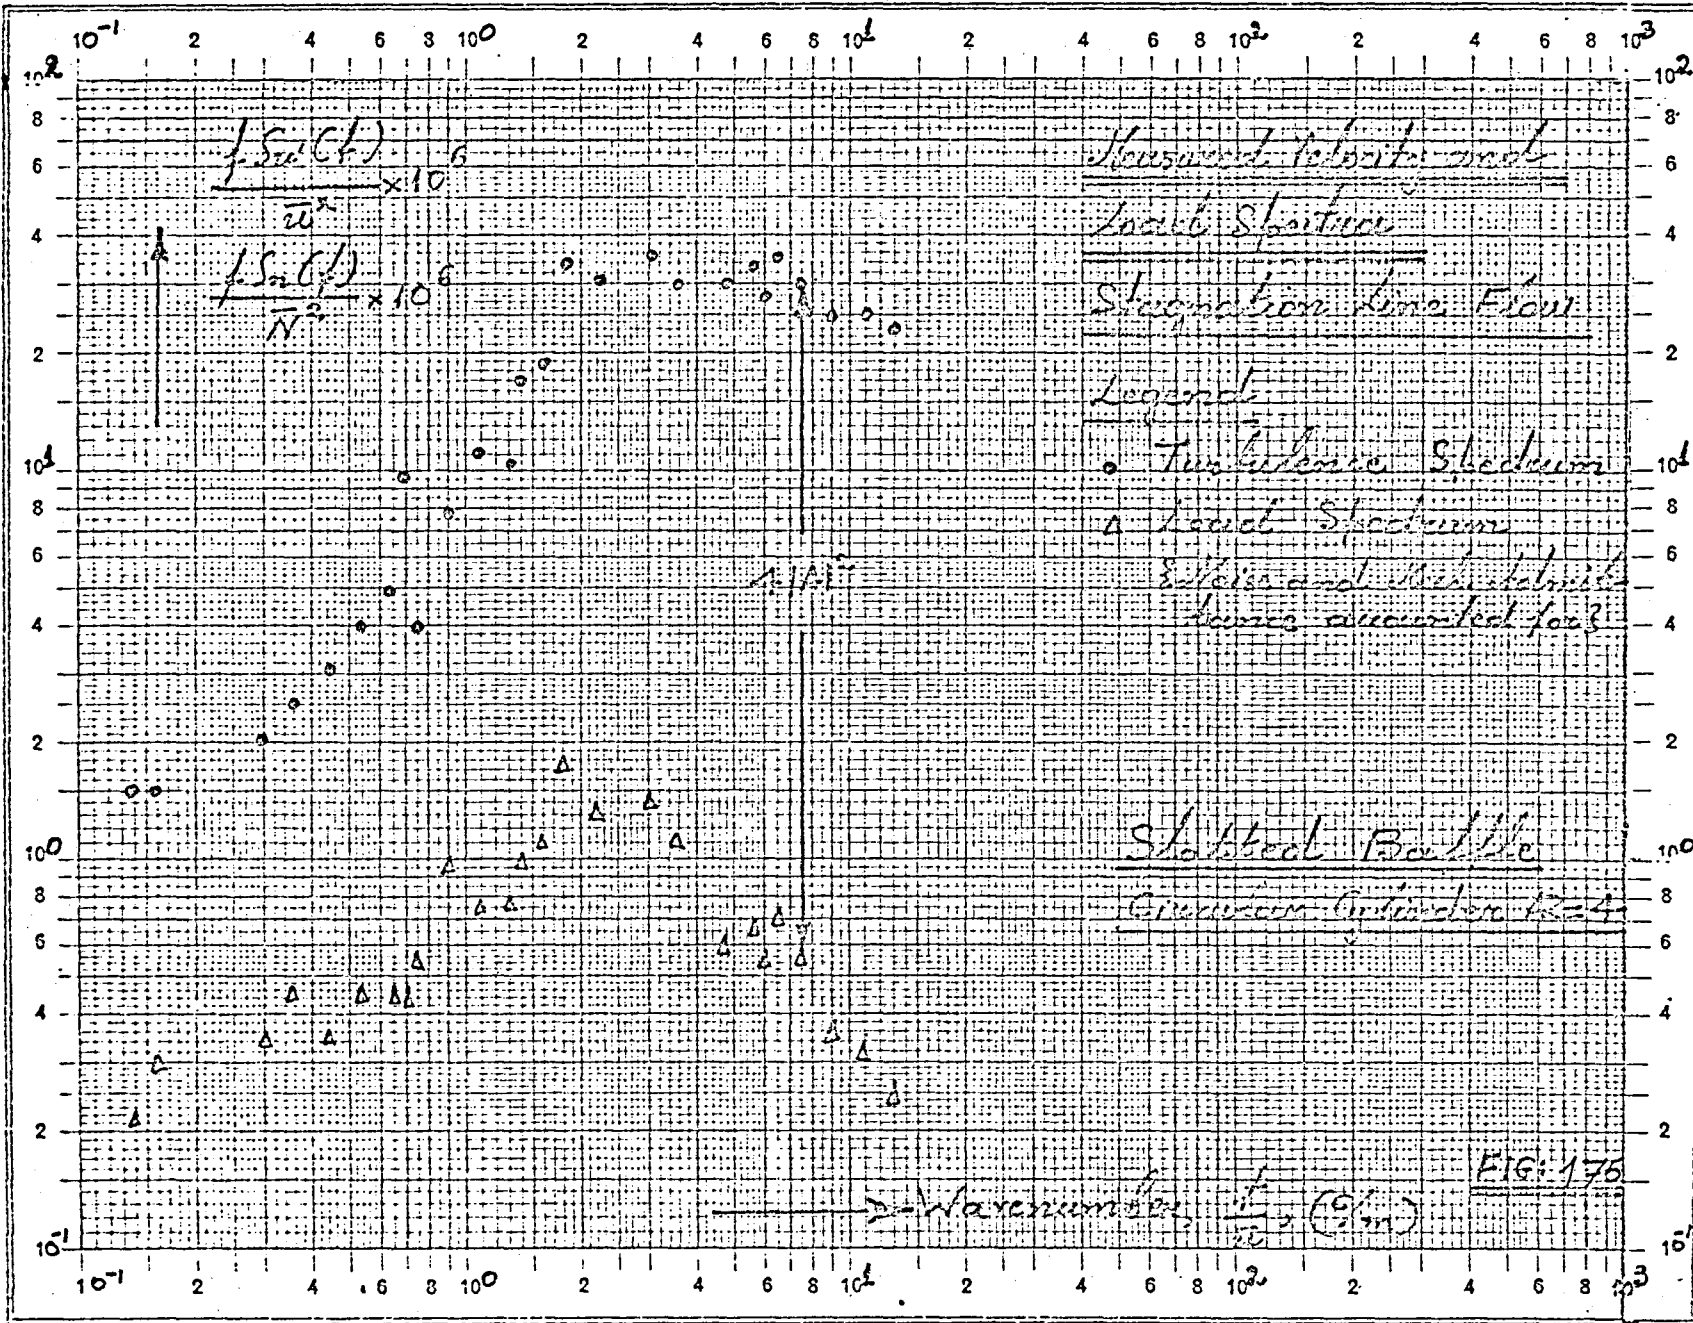 10⁻¹ 2 4 6 8 10⁰ 2 4 6 8 10¹ 2 4 6 8 10² 2 4 6 8 10³
10² 8 6 4 2 10¹ 8 6 4 2 10⁰ 8 6 4 2 10⁻¹
f.Su(f) × 10⁶
ū²
f.Sn(f) × 10⁶
N̄²
Measured Velocity and
Load Spectra
Stagnation Line Flow
Legend
Turbulence Spectrum
Load Spectrum
{Noise and Mech. Admit-
tance accounted for}
Slotted Baffle
Circular Cylinder R=4
FIG: 175
Wavenumber, f/ū, (c/m)
10² 8 6 4 2 10¹ 8 6 4 2 10⁰ 8 6 4 2 10⁻¹
10⁻¹ 2 4 6 8 10⁰ 2 4 6 8 10¹ 2 4 6 8 10² 2 4 6 8 10³